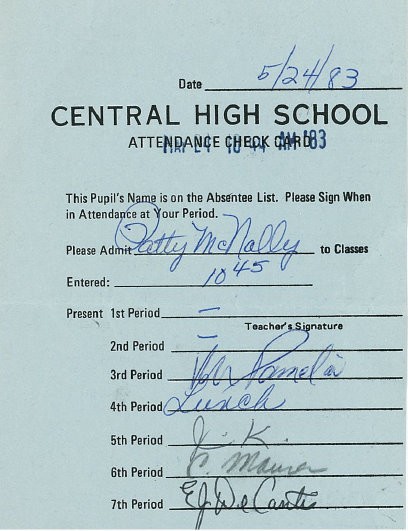 Date 5/24/83
CENTRAL HIGH SCHOOL
ATTENDANCE CHECK CARD
MAY 24 10 44 AM '83
This Pupil's Name is on the Absentee List. Please Sign When
in Attendance at Your Period.
Please Admit Patty McNally to Classes
Entered: 10 45
Present 1st Period —
Teacher's Signature
2nd Period —
3rd Period
4th Period Lunch
5th Period J. K.
6th Period C. Maurer
7th Period EJ DeCantis